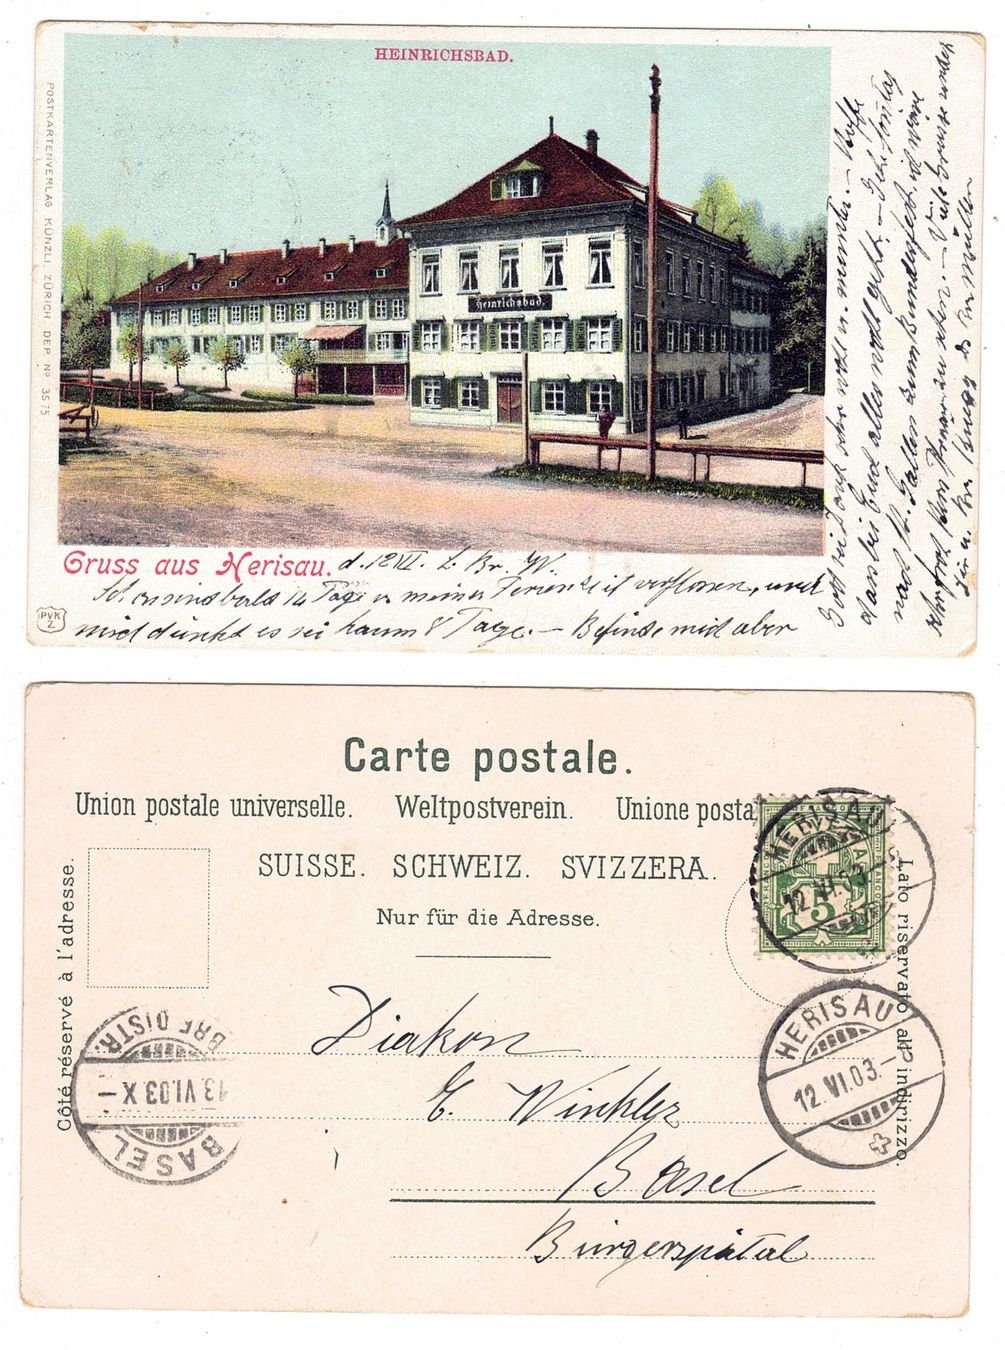 HEINRICHSBAD.
POSTKARTENVERLAG KÜNZLI, ZÜRICH DEP. Nº 3575
Heinrichsbad.
Gruss aus Herisau.
d. 12 VI. L. Br. W.
Schon sind bald 14 Tage v. meiner Ferienzeit verflossen, und
mich dünkt es sei kaum 8 Tage. — Befinde mich aber
Gott sei Dank sehr wohl u. munter. — Hoffe
dass bei Euch alles wohl geht. — Sonntag
nach St. Gallen zum Bundesfest
Viele Grüsse
PVK
Z
Carte postale.
Union postale universelle. Weltpostverein. Unione posta
SUISSE. SCHWEIZ. SVIZZERA.
Nur für die Adresse.
Côté réservé à l'adresse.
Lato riservato all' indirizzo.
HELVETIA
5
HERISAU
12.VI.03.
HERISAU
12.VI.03.–
BASEL
13.VI.03.X–
BRF. DISTR.
Diakon
E. Winkler
Basel
Bürgerspital